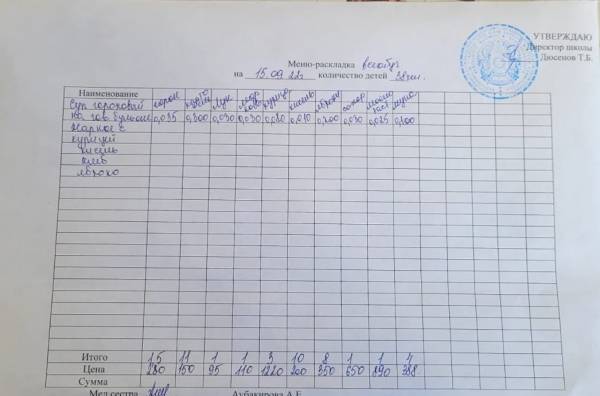 УТВЕРЖДАЮ
Директор школы
Дюсенов Т.Б.
Меню-раскладка
на 15.09.22г количество детей
Наименование горох лук морковь курица кисель яблоко сахар масло
Суп гороховый
на гов. бульоне 0,035 0,300 0,030 0,030 0,080 0,010 0,200 0,030 0,025 0,100
Жаркое с
курицей
кисель
хлеб
яблоко
Итого 1,5 11 1 1 3 10 8 1 1 4
Цена 280 150 95 110 1220 200 350 650 890 388
Сумма
Мед сестра Аубакирова А.Е.